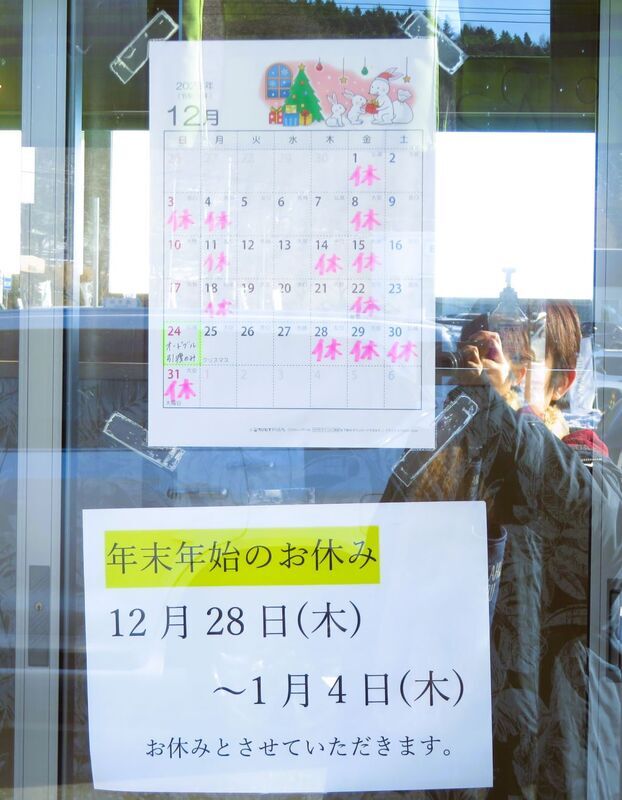 12月
日 月 火 水 木 金 土
26 27 28 29 30 1 2
休
3 4 5 6 7 8 9
休 休 休
10 11 12 13 14 15 16
休 休 休
17 18 19 20 21 22 23
休 休
24 25 26 27 28 29 30
オードブル
引渡のみ
クリスマス
休 休 休
31 1 2 3 4 5 6
休
大晦日
年末年始のお休み
12月28日(木)
～1月4日(木)
お休みとさせていただきます。